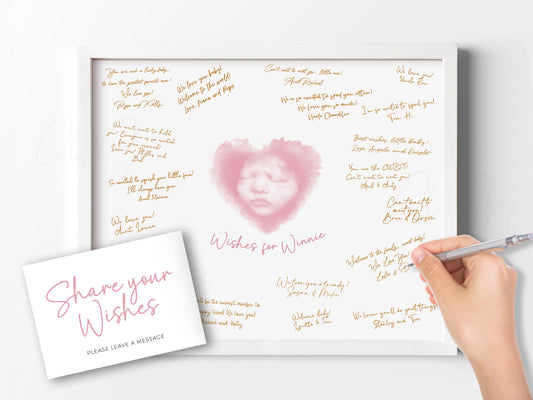 You are such a lucky baby,
to have the greatest parents ever!
We love you!
Rojan and Kelly
We love you baby!
Welcome to the world!
Love, Nana and Pops
Can't wait to meet you, little one!
Aunt Rachel
We love you!
Uncle Ben
We're so excited to spoil you rotten!
We love you so much!
Uncle Chandler
I'm so excited to spoil you!
Tom H.
We can't wait to hold
you! Everyone is so excited
for your arrival!
Love you! Phyllis and
Best wishes, little baby!
Love,
You are the CUTEST!
Can't wait to meet you!
April & Andy
So excited to squish your little face!
I'll always love you.
Aunt Monica
Can't wait to
meet you!
We love you!
Aunt Laura
Wishes for Winnie
Welcome to the family, sweet baby!
We Love You
We love you already!
Susan & Mike
Share your
Wishes
PLEASE LEAVE A MESSAGE
ll be the newest member to
happy tears! We love you!
Michael and Holly
Welcome baby!
Lynette & Tom
We know you'll do great things!
Stanley and Teri